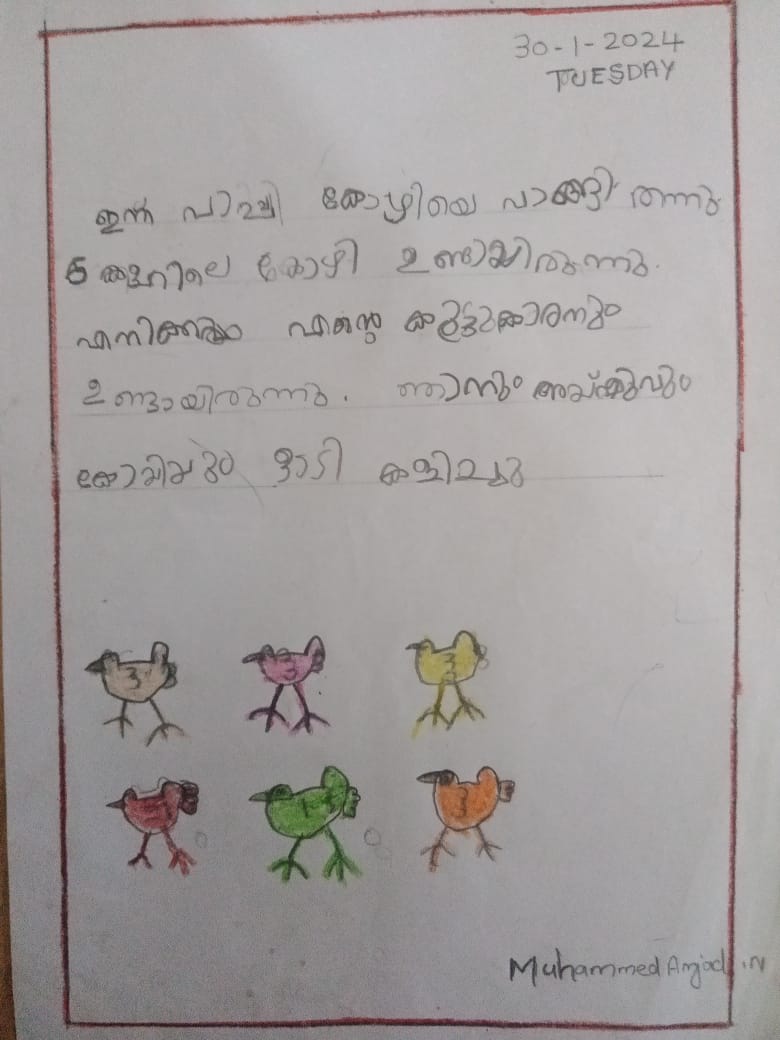 30-1-2024
TUESDAY
ഇന്ന് വാപ്പച്ചി കോഴിയെ വാങ്ങി തന്നു
6 കളറിലെ കോഴി ഉണ്ടായിരുന്നു.
എനിക്കും എന്റെ കൂട്ടുകാരനും
ഉണ്ടായിരുന്നു. ഞാനും അയ്ക്കുവും
കോഴിയും ഓടി കളിച്ചു
3 3 3
3
Muhammed Amjad .N